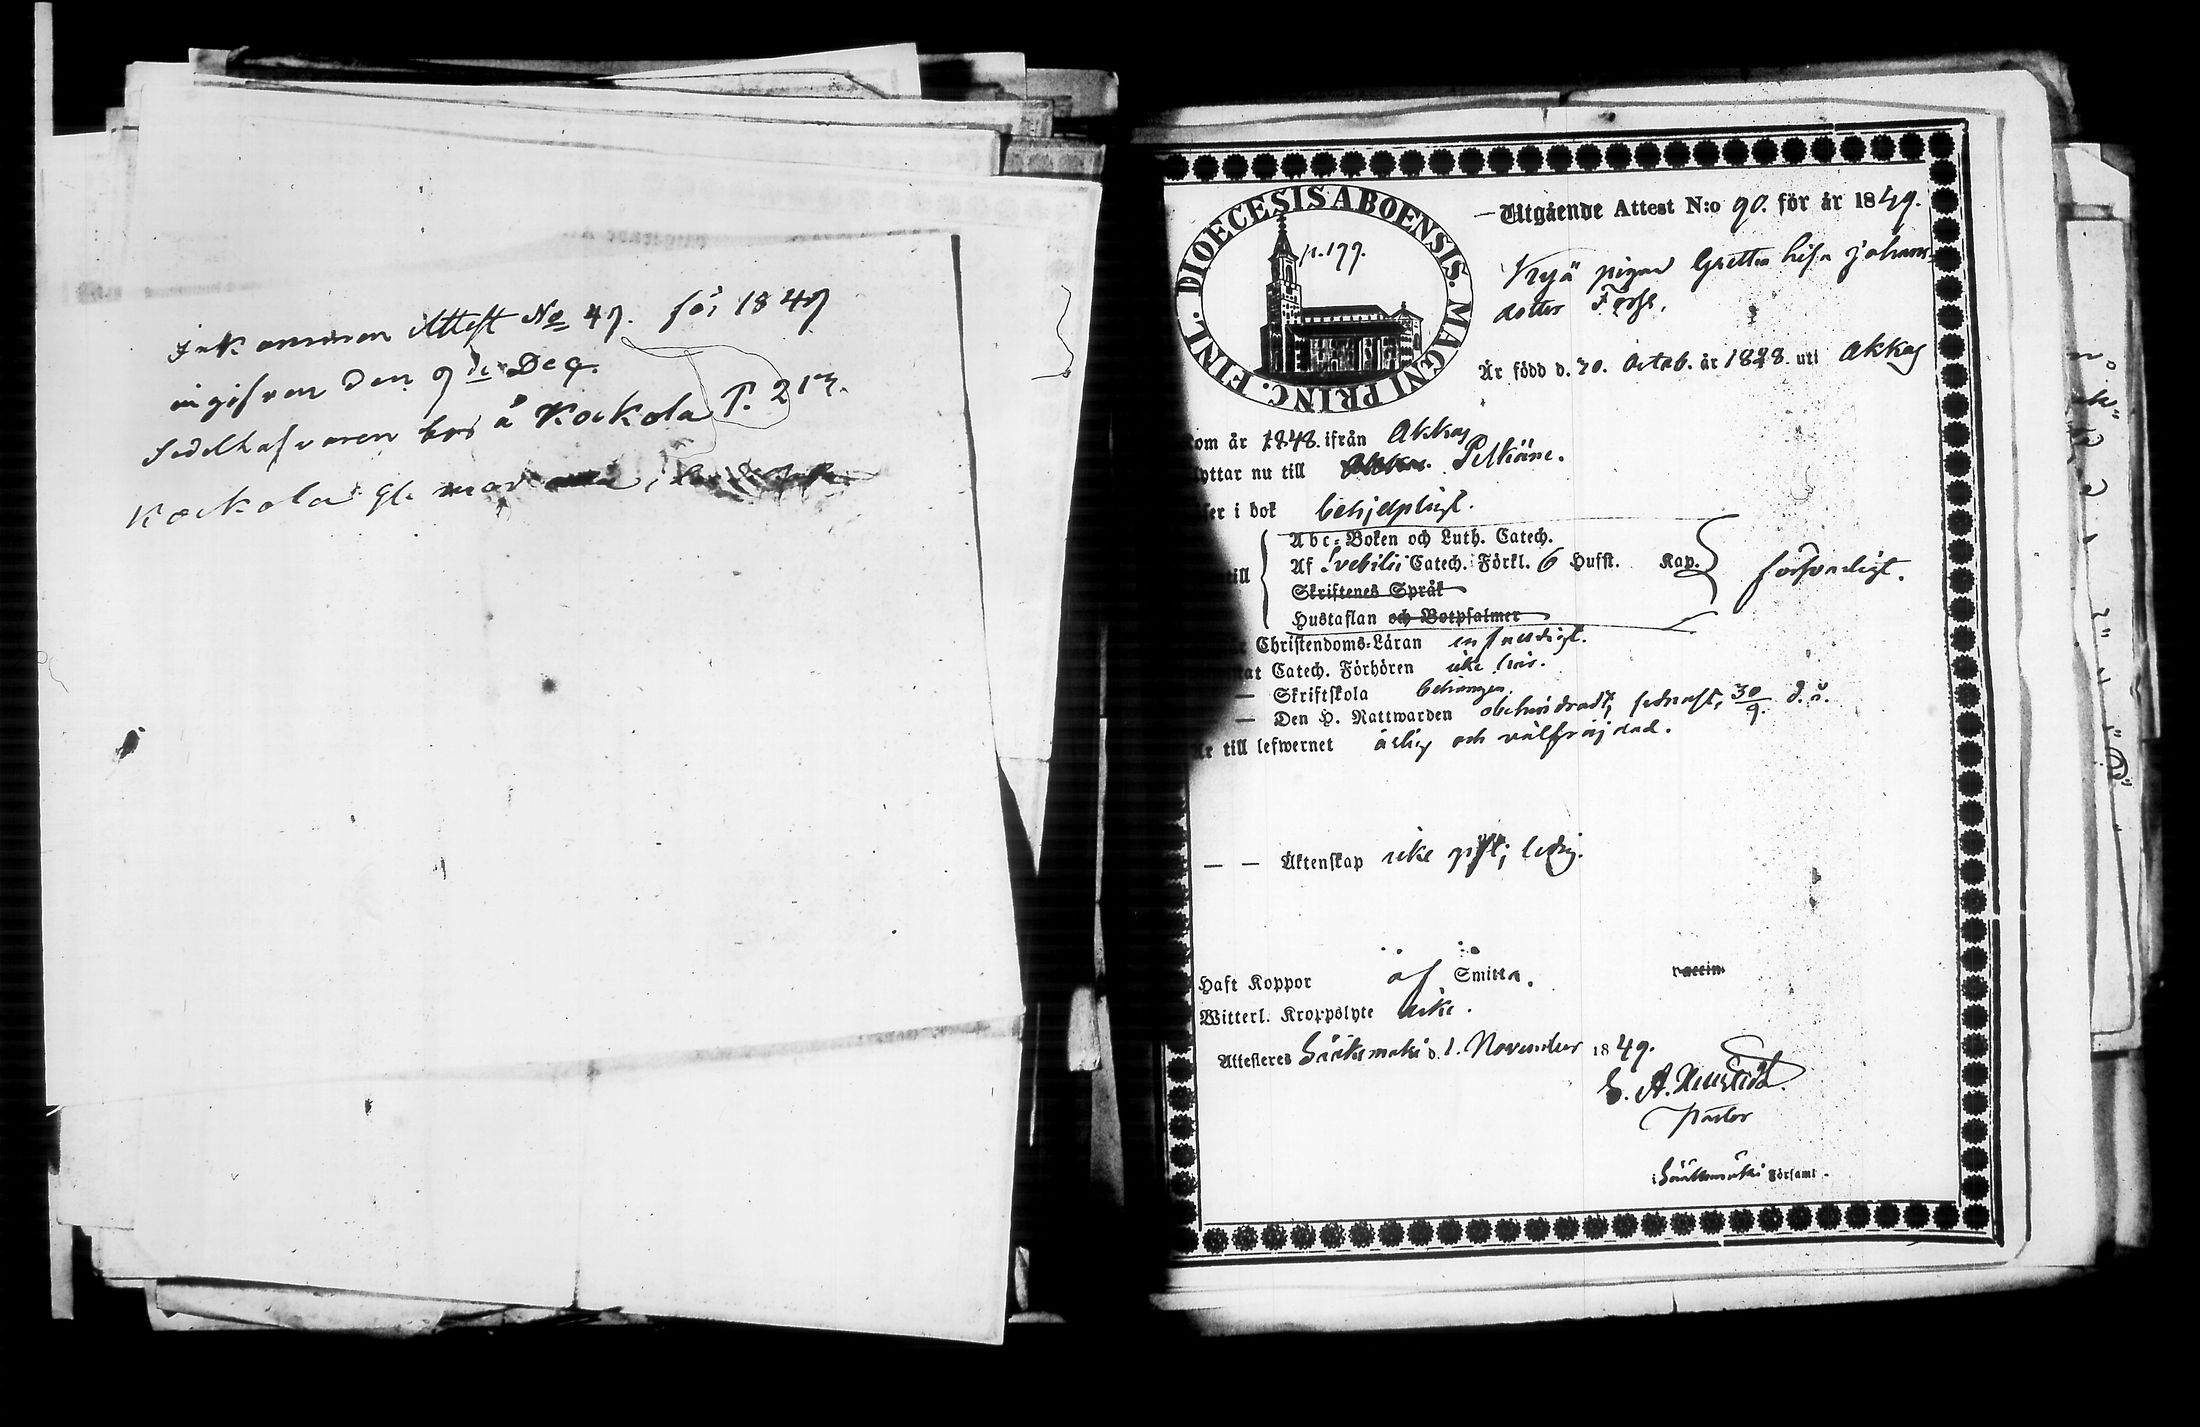 Inkommen Attest No 47. för 1849
ingifven den 9de Dec.
Sedelhafvaren bor å Kockola P. 213.
Kockola
DIOECESIS ABOENSIS. MAGNI PRINC. FINL.
p. 199.
Utgående Attest N:o 90. för år 1849.
pigan Gretta Lisa Johans-
dotter Forss.
Är född d. 20. Octob. år 1828. uti Akkas
om år 1848. ifrån Akkas
yttar nu till Pelkäne.
ser i bok behjelpligt.
Abc-Boken och Luth. Catech.
till Af Svebilii Catech. Förkl. 6 Hufst. Kap. försvarligt.
Skriftenes Språk
Hustaflan och Botpsalmer
Christendoms-Läran enfaldigt.
at Catech. Förhören icke här.
— Skriftskola behörigen.
— Den H. Nattwarden obehindradt, sednast, 30/9. d. å.
r till lefwernet ärlig och välfräjdad.
— — Äktenskap icke gift; ledig.
Haft Koppor af Smitta. vaccin
Witterl. Kroppslyte icke.
Attesteras Sääksmäki d. 1. November 1849.
Pastor
i Sääksmäki Församl.